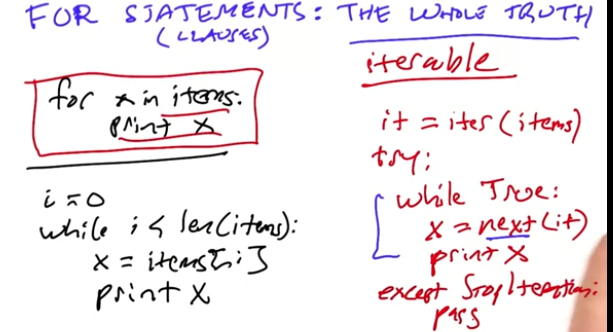 FOR STATEMENTS: THE WHOLE TRUTH
(CLAUSES)
for x in items:
print x
i = 0
while i < len(items):
x = items[i]
print x
iterable
it = iter(items)
try:
while True:
x = next(it)
print x
except StopIteration:
pass